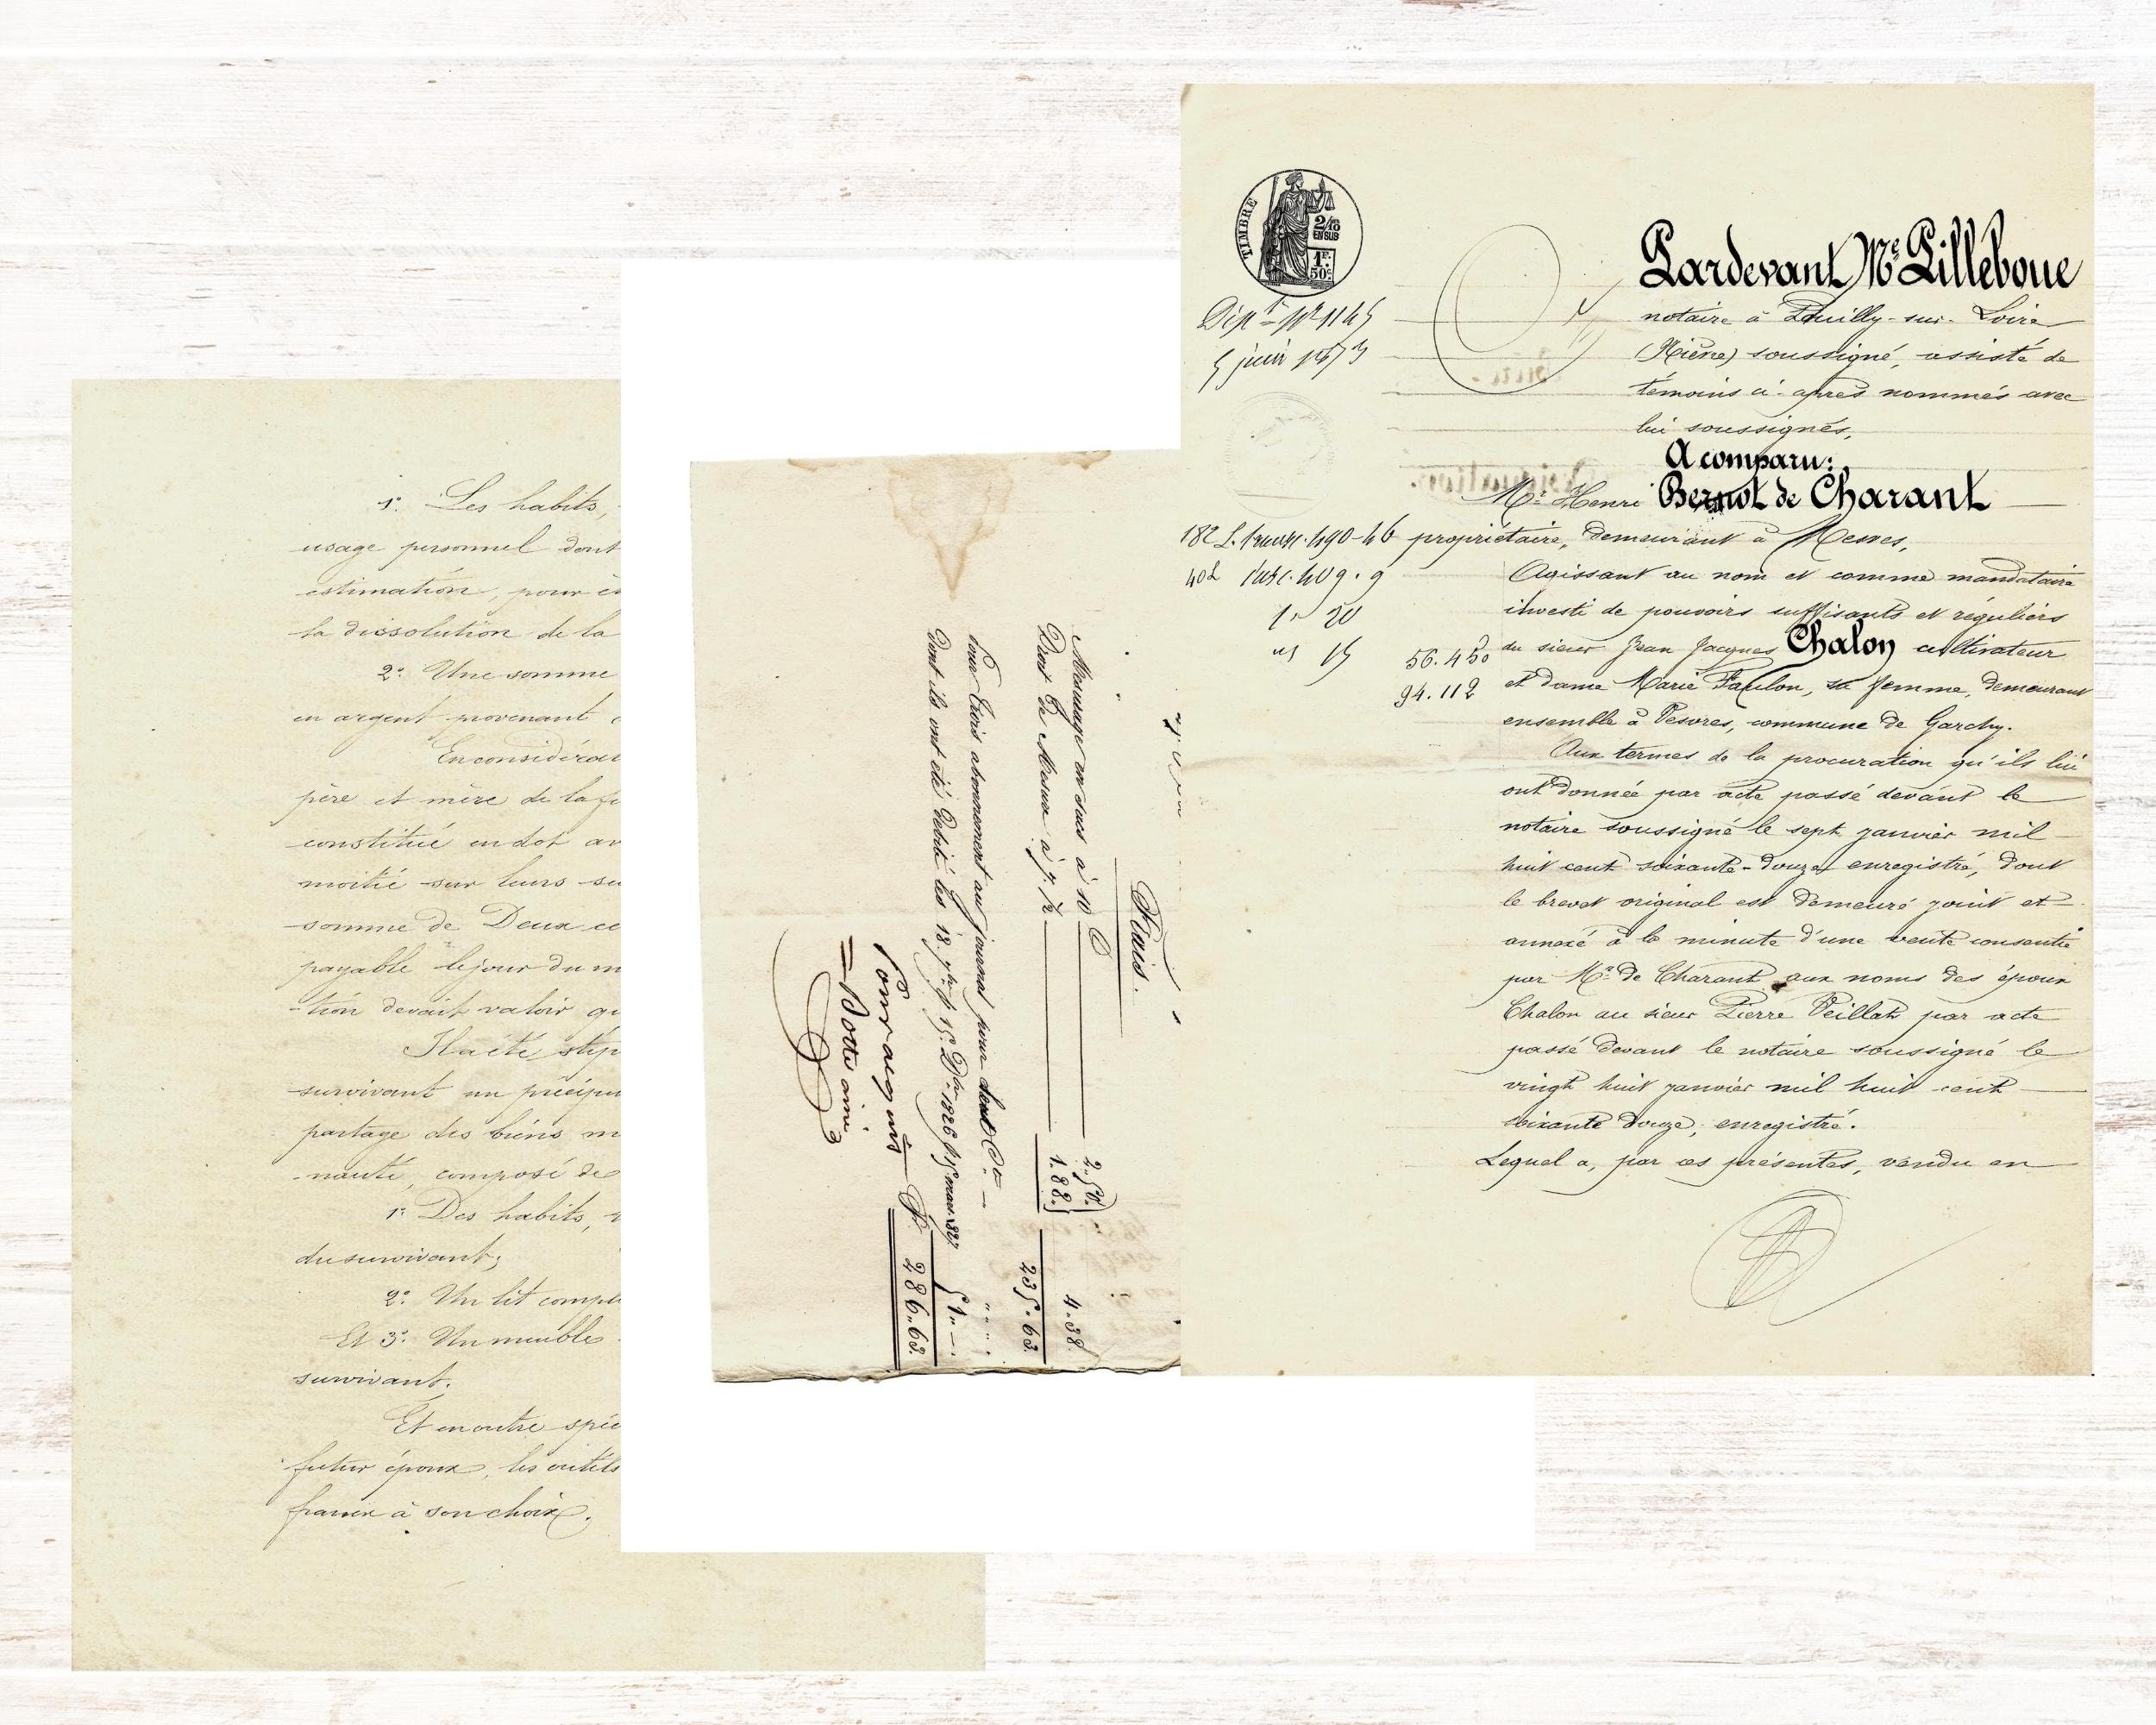 1° Les habits,
usage personnel dont
estimation, pour
la dissolution de la
2° Une somme
en argent provenant
En considérat
père et mère de la fu
constitué en dot av
moitié sur leurs su
somme de Deux ce
payable le jour du m
-tion devait valoir qu
Il a été stip
survivant un préciput
partage des biens m
-nauté, composé de
1° Des habits,
du survivant;
2° Un lit compl
Et 3° Un meuble
survivant.
Et en outre spéc
futur époux, les outils
francs à son choix.
Frais.
Mesurage en sacs à 10 C 2.50.
Droit de Mesure à 7½ 1.88. 4.38
235.63.
Pour trois abonnement au journal pour
Dont ils ont été Débité les 18. 7bre, 15. Xbre 1826 & 15 mars 1827 51.--
Pour acquis F. 286.63.
Botte ainé.
TIMBRE
2/10
EN SUS
1F.
50c
Pardevant Me Lilleboue
notaire à Pouilly-sur-Loire
(Nièvre) soussigné, assisté de
témoins ci-après nommés avec
lui soussignés,
A comparu:
Mr Henri Bernot de Charant
propriétaire, demeurant à Mesves,
Agissant au nom et comme mandataire
investi de pouvoirs suffisants et réguliers
56.450 du sieur Jean Jacques Chalon cultivateur
94.112 et dame Marie Faulon, sa femme, demeurant
ensemble à Vesvres, commune de Garchy.
Aux termes de la procuration qu'ils lui
ont donnée par acte passé devant le
notaire soussigné le sept janvier mil
huit cent soixante-douze, enregistré, dont
le brevet original est demeuré joint et
annexé à la minute d'une vente consentie
par Mr de Charant aux noms des époux
Chalon au sieur Pierre Veillat par acte
passé devant le notaire soussigné le
vingt huit janvier mil huit cent
soixante douze, enregistré.
Lequel a, par ces présentes, vendu en